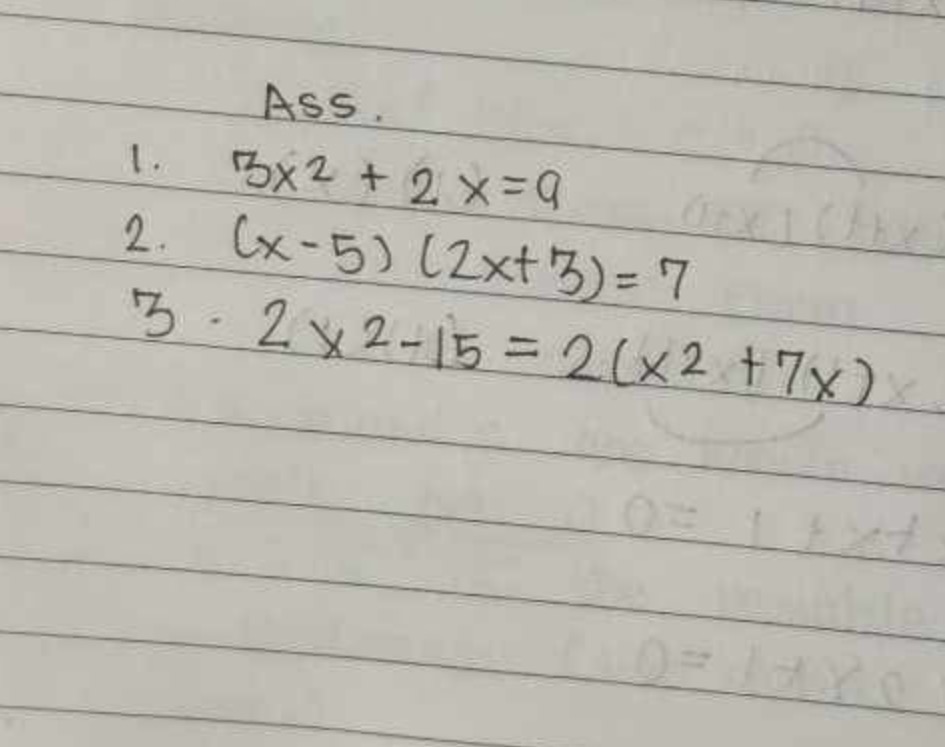 Ass.
1. 3x2 + 2x=9
2. (x-5) (2x+3)=7
3. 2x2-15 = 2(x2 +7x)